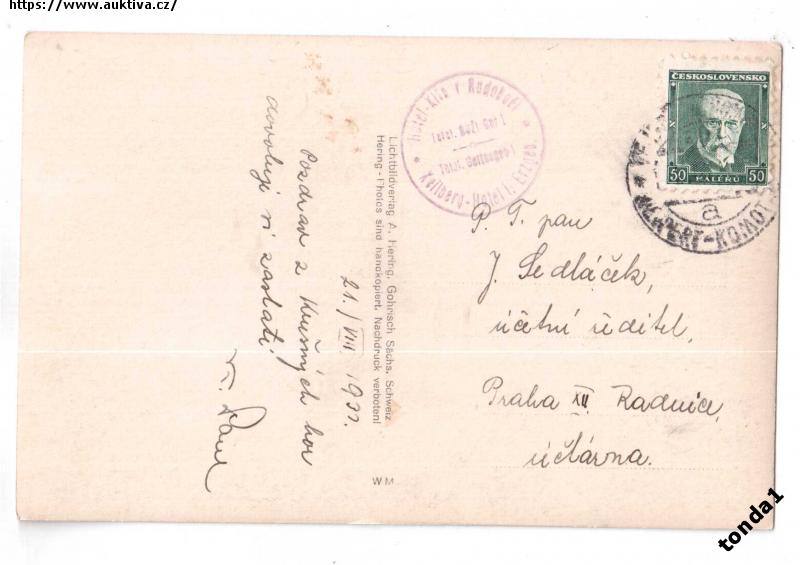 https://www.auktiva.cz/
ČESKOSLOVENSKO
50 HALÉŘŮ 50
WEIPERT-KOMOT
a
Hotel-Klín v Rudohoří
Telef. Boží Dar 1
Telef. Gottesgab 1
Keilberg-Hotel i. Erzgeb.
Lichtbildverlag A. Hering, Gohrisch Sächs. Schweiz
Hering-Photos sind handkopiert. Nachdruck verboten!
WM
21./VIII. 1933.
Pozdrav z Krušných hor
dovoluji si zaslati
P. T. pan
J. Sedláček,
účetní ředitel,
Praha XII. Radnice,
účtárna.
tonda1